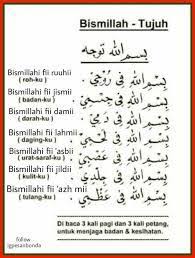 Bismillah - Tujuh
بسم الله توجه
Bismillahi fii ruuhii
( roh-ku )
بسم الله في روحي
Bismillahi fii jismii
( badan-ku )
بسم الله في جسمي
Bismillahi fii damii
( darah-ku )
بسم الله في دمي
Bismillahi fii lahmii
( daging-ku )
بسم الله في لحمي
Bismillahi fii 'asbii
( urat-saraf-ku )
بسم الله في عصبي
Bismillahi fii jildii
( kulit-ku )
بسم الله في جلدي
Bismillahi fii 'azh mii
( tulang-ku )
بسم الله في عظمي
Di baca 3 kali pagi dan 3 kali petang,
untuk menjaga badan & kesihatan.
follow
@pesanbonda